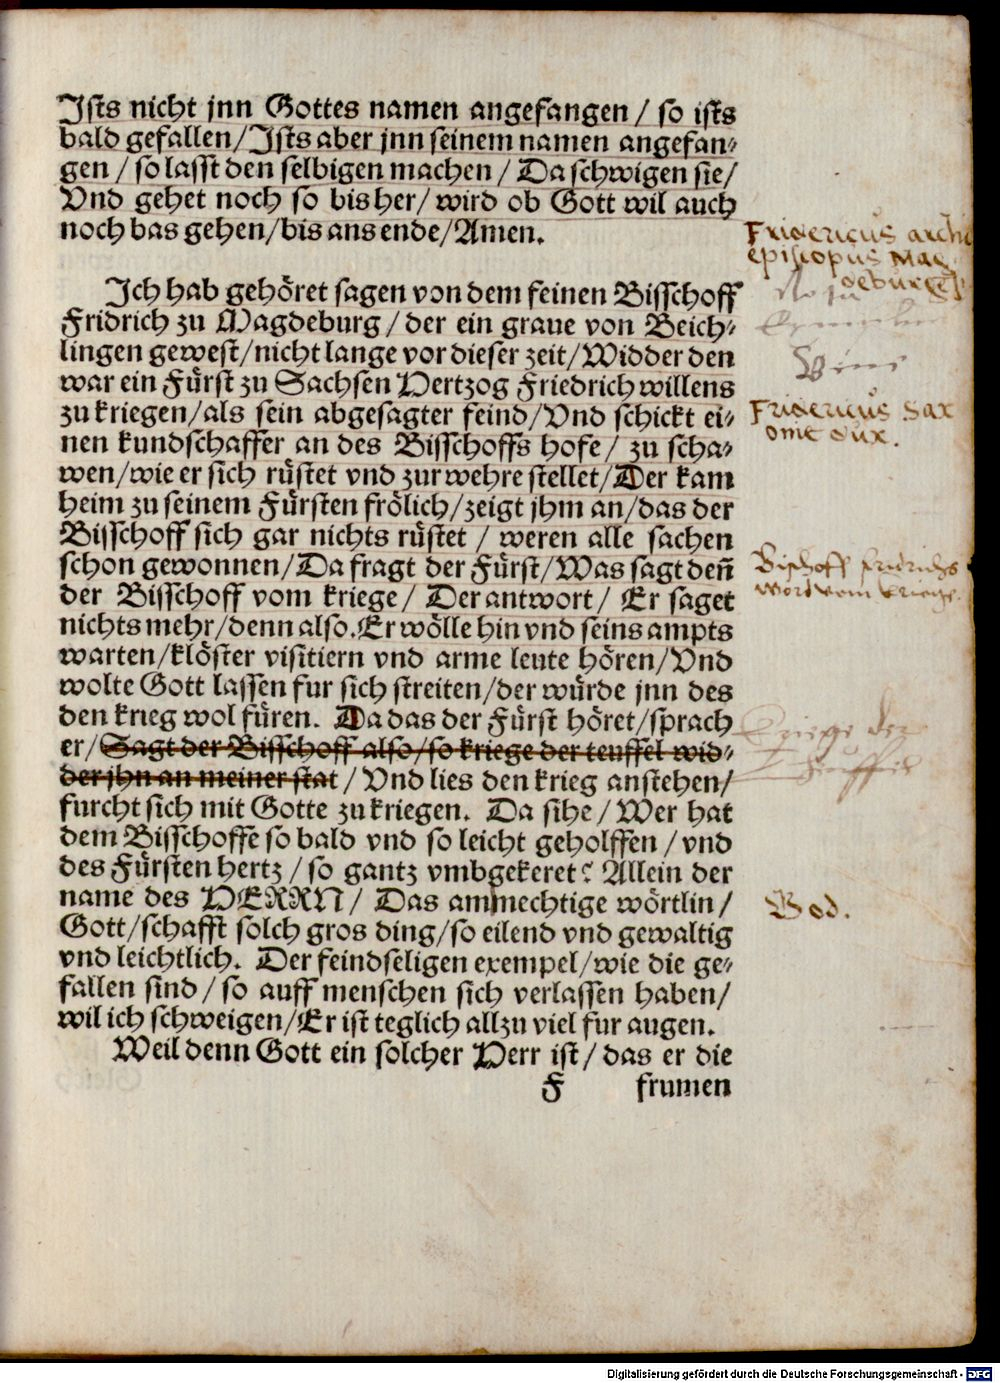 Jsts nicht jnn Gottes namen angefangen / so ists
bald gefallen / Jsts aber jnn seinem namen angefan⸗
gen / so lasst den selbigen machen / Da schwigen sie /
Vnd gehet noch so bis her / wird ob Gott wil auch
noch bas gehen / bis ans ende / Amen.
Jch hab gehöret sagen von dem feinen Bisschoff
Fridrich zu Magdeburg / der ein graue von Beich⸗
lingen gewest / nicht lange vor dieser zeit / Widder den
war ein Fürst zu Sachsen Hertzog Friedrich willens
zu kriegen / als sein abgesagter feind / Vnd schickt ei⸗
nen kundschaffer an des Bisschoffs hofe / zu scha⸗
wen / wie er sich rüstet vnd zur wehre stellet / Der kam
heim zu seinem Fürsten frölich / zeigt jhm an / das der
Bisschoff sich gar nichts rüstet / weren alle sachen
schon gewonnen / Da fragt der Fürst / Was sagt deñ
der Bisschoff vom kriege / Der antwort / Er saget
nichts mehr / denn also. Er wölle hin vnd seins ampts
warten / klöster visitiern vnd arme leute hören / Vnd
wolte Gott lassen fur sich streiten / der würde jnn des
den krieg wol füren. Da das der Fürst höret / sprach
er / Sagt der Bisschoff also / so kriege der teuffel wid⸗
der jhn an meiner stat / Vnd lies den krieg anstehen /
furcht sich mit Gotte zu kriegen. Da sihe / Wer hat
dem Bisschoffe so bald vnd so leicht geholffen / vnd
des Fürsten hertz / so gantz vmbgekeret? Allein der
name des HERRN / Das ammechtige wörtlin /
Gott / schafft solch gros ding / so eilend vnd gewaltig
vnd leichtlich. Der feindseligen exempel / wie die ge⸗
fallen sind / so auff menschen sich verlassen haben /
wil ich schweigen / Er ist teglich allzu viel fur augen.
Weil denn Gott ein solcher Herr ist / das er die
F frumen
Fridericus archi
episcopus Mag
deburgen
Fridericus Sax
onie dux.
Bischoff fridrichs
wort vom kriege.
Kriege der
Teuffel
God.
Gleich
Digitalisierung gefördert durch die Deutsche Forschungsgemeinschaft - DFG